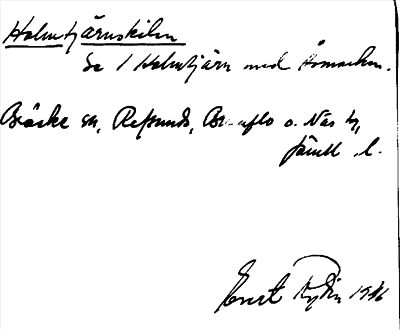 Holmtjärnskilen
Se 1 Holmtjärn med
Bräcke sn, Refsunds, Brunflo o. Näs
Jämtl. l.
Ernst Rydin 1946